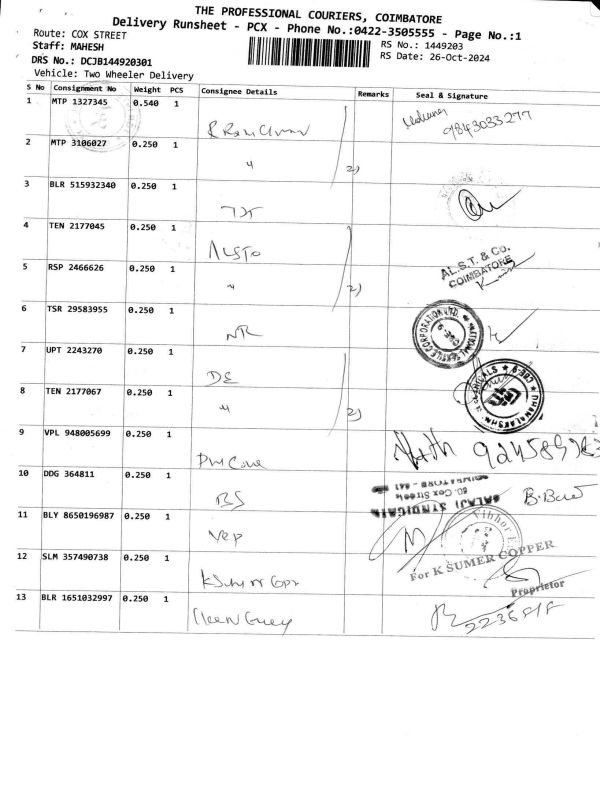 THE PROFESSIONAL COURIERS, COIMBATORE
Delivery Runsheet - PCX - Phone No.:0422-3505555 - Page No.:1
Route: COX STREET
Staff: MAHESH
DRS No.: DCJB144920301
Vehicle: Two Wheeler Delivery
RS No.: 1449203
RS Date: 26-Oct-2024
S No Consignment No Weight PCS Consignee Details Remarks Seal & Signature
1 MTP 1327345 0.540 1
9843033277
2 MTP 3106027 0.250 1 " 2)
3 BLR 515932340 0.250 1
4 TEN 2177045 0.250 1 ALSTo
AL.S.T. & Co.
COIMBATORE
5 RSP 2466626 0.250 1 " 2)
6 TSR 29583955 0.250 1
7 UPT 2243270 0.250 1 DE
8 TEN 2177067 0.250 1 " 2)
9 VPL 948005699 0.250 1
10 DDG 364811 0.250 1 BS
BALAJI SYNDICATE
80, Cox Street
COIMBATORE - 641
11 BLY 8650196987 0.250 1 VRP
12 SLM 357490738 0.250 1
For K SUMER COPPER
Proprietor
13 BLR 1651032997 0.250 1